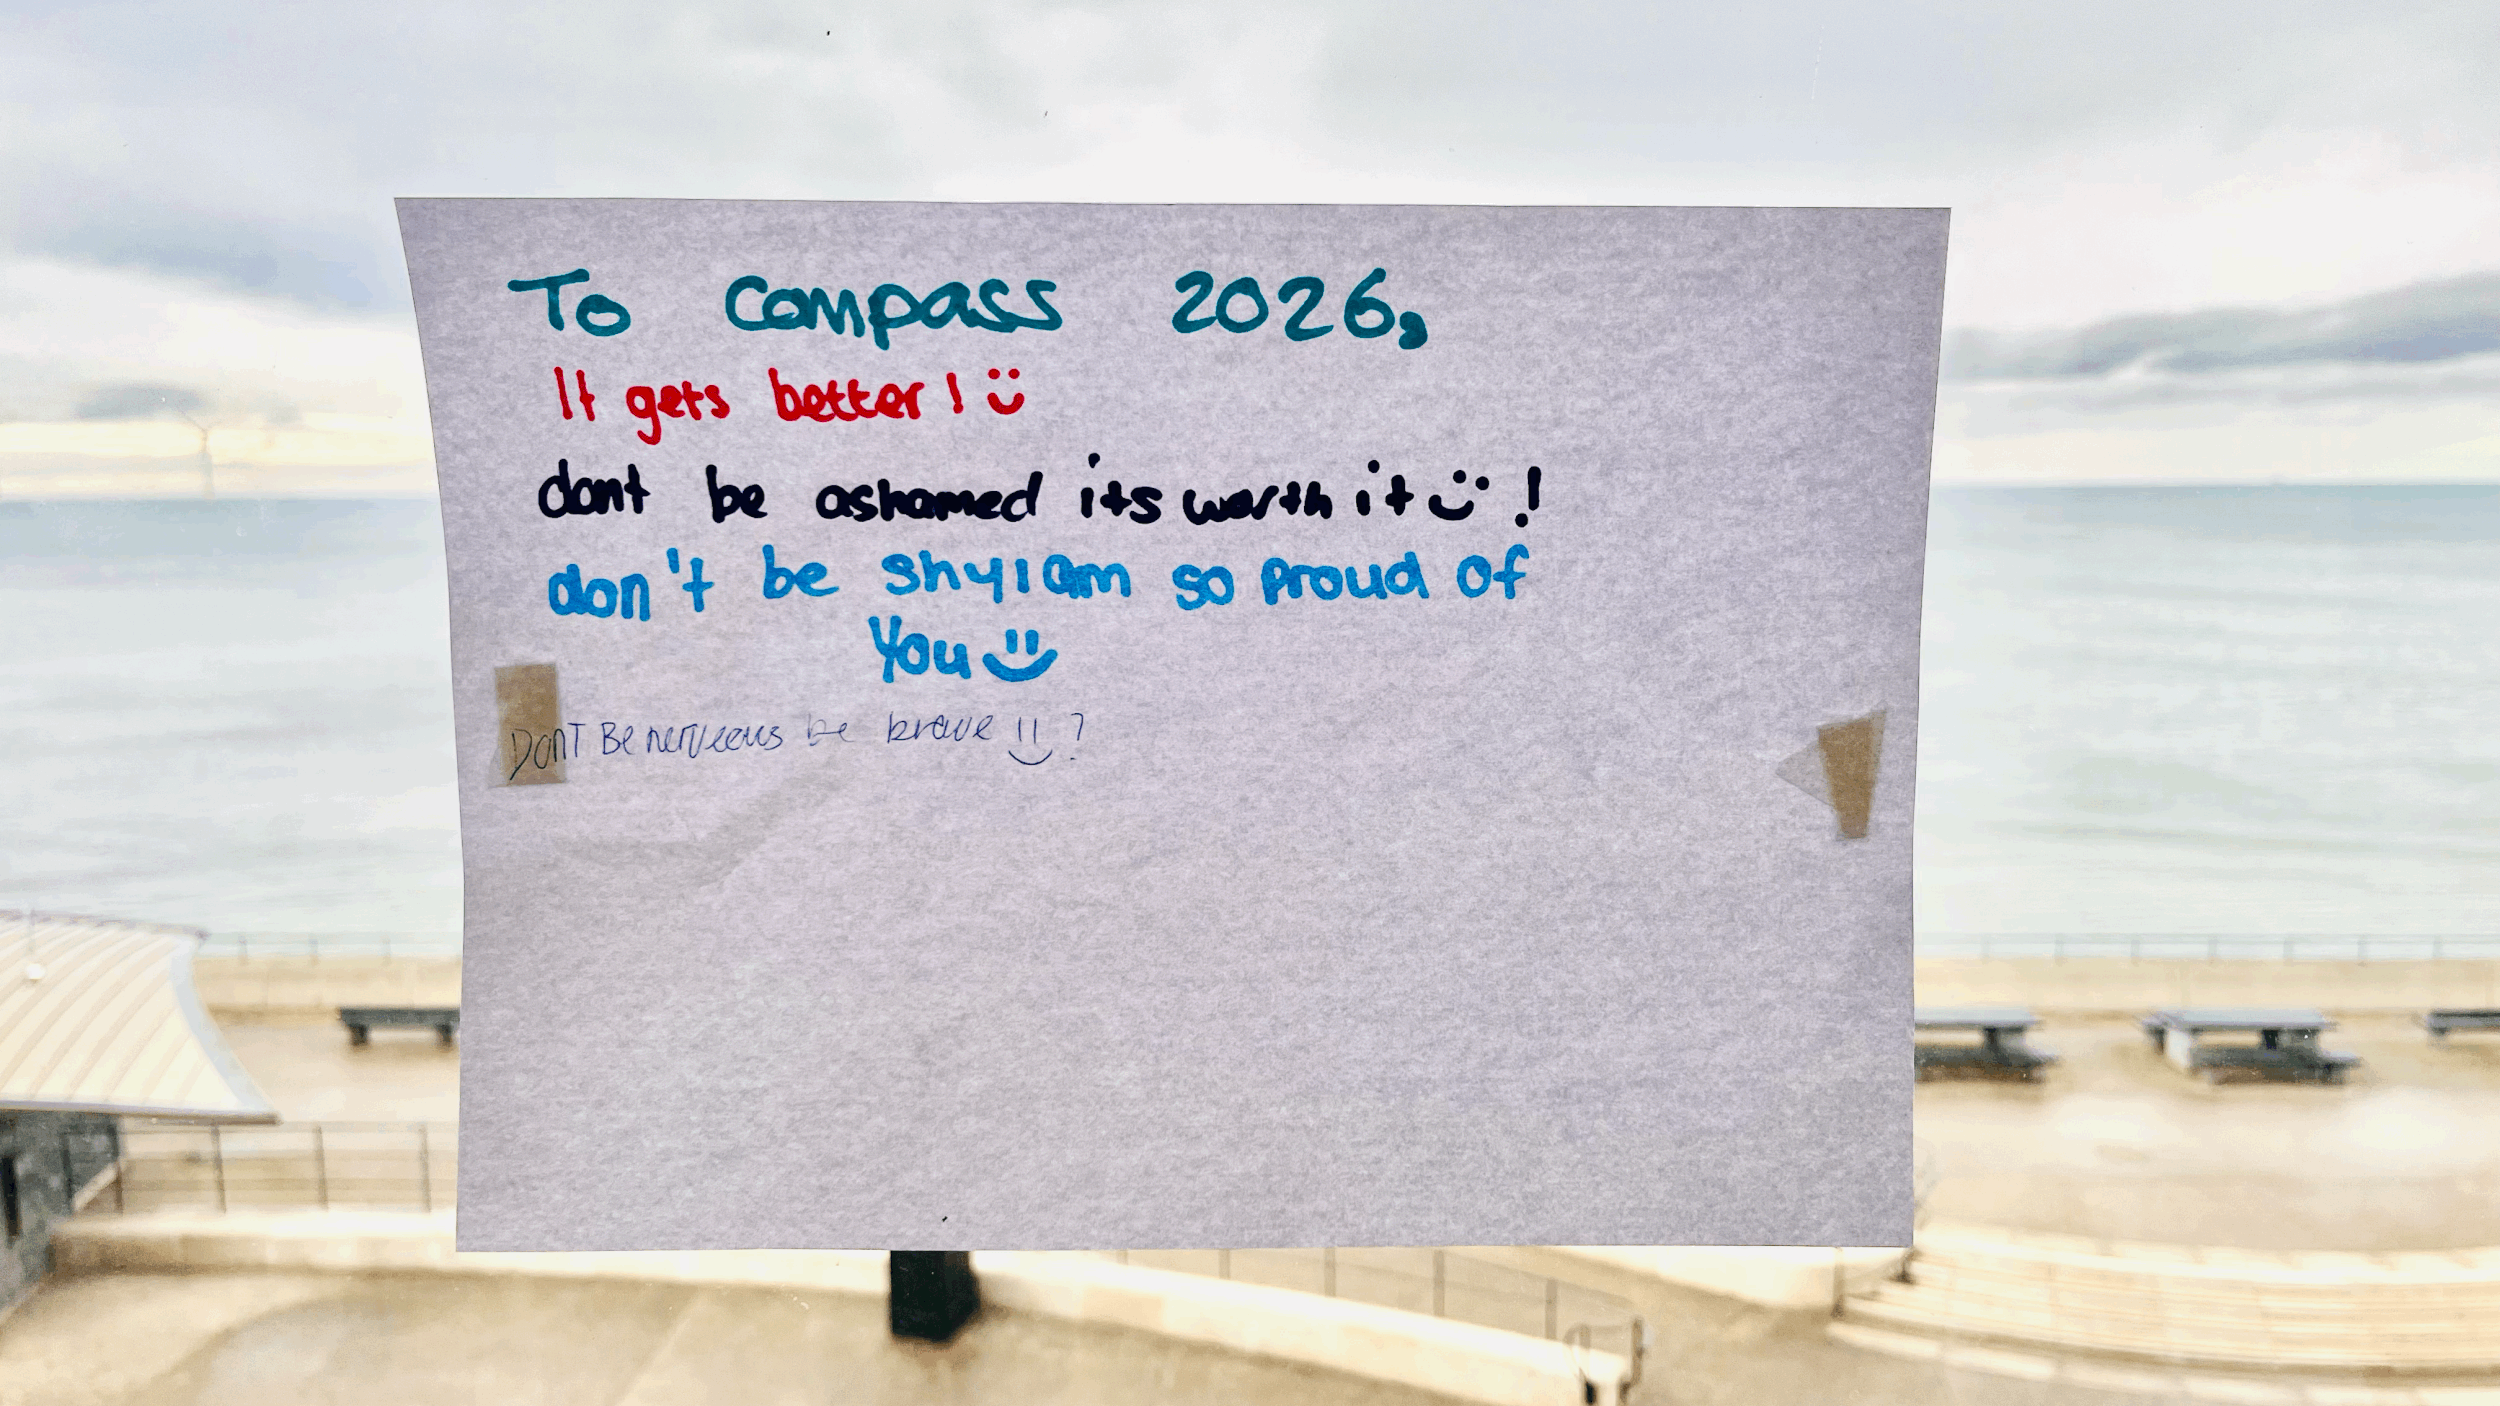 To Compass 2026,
It gets better!
dont be ashamed its worth it !
don't be shy I am so proud of
You
DonT Be nerveous be brave ?